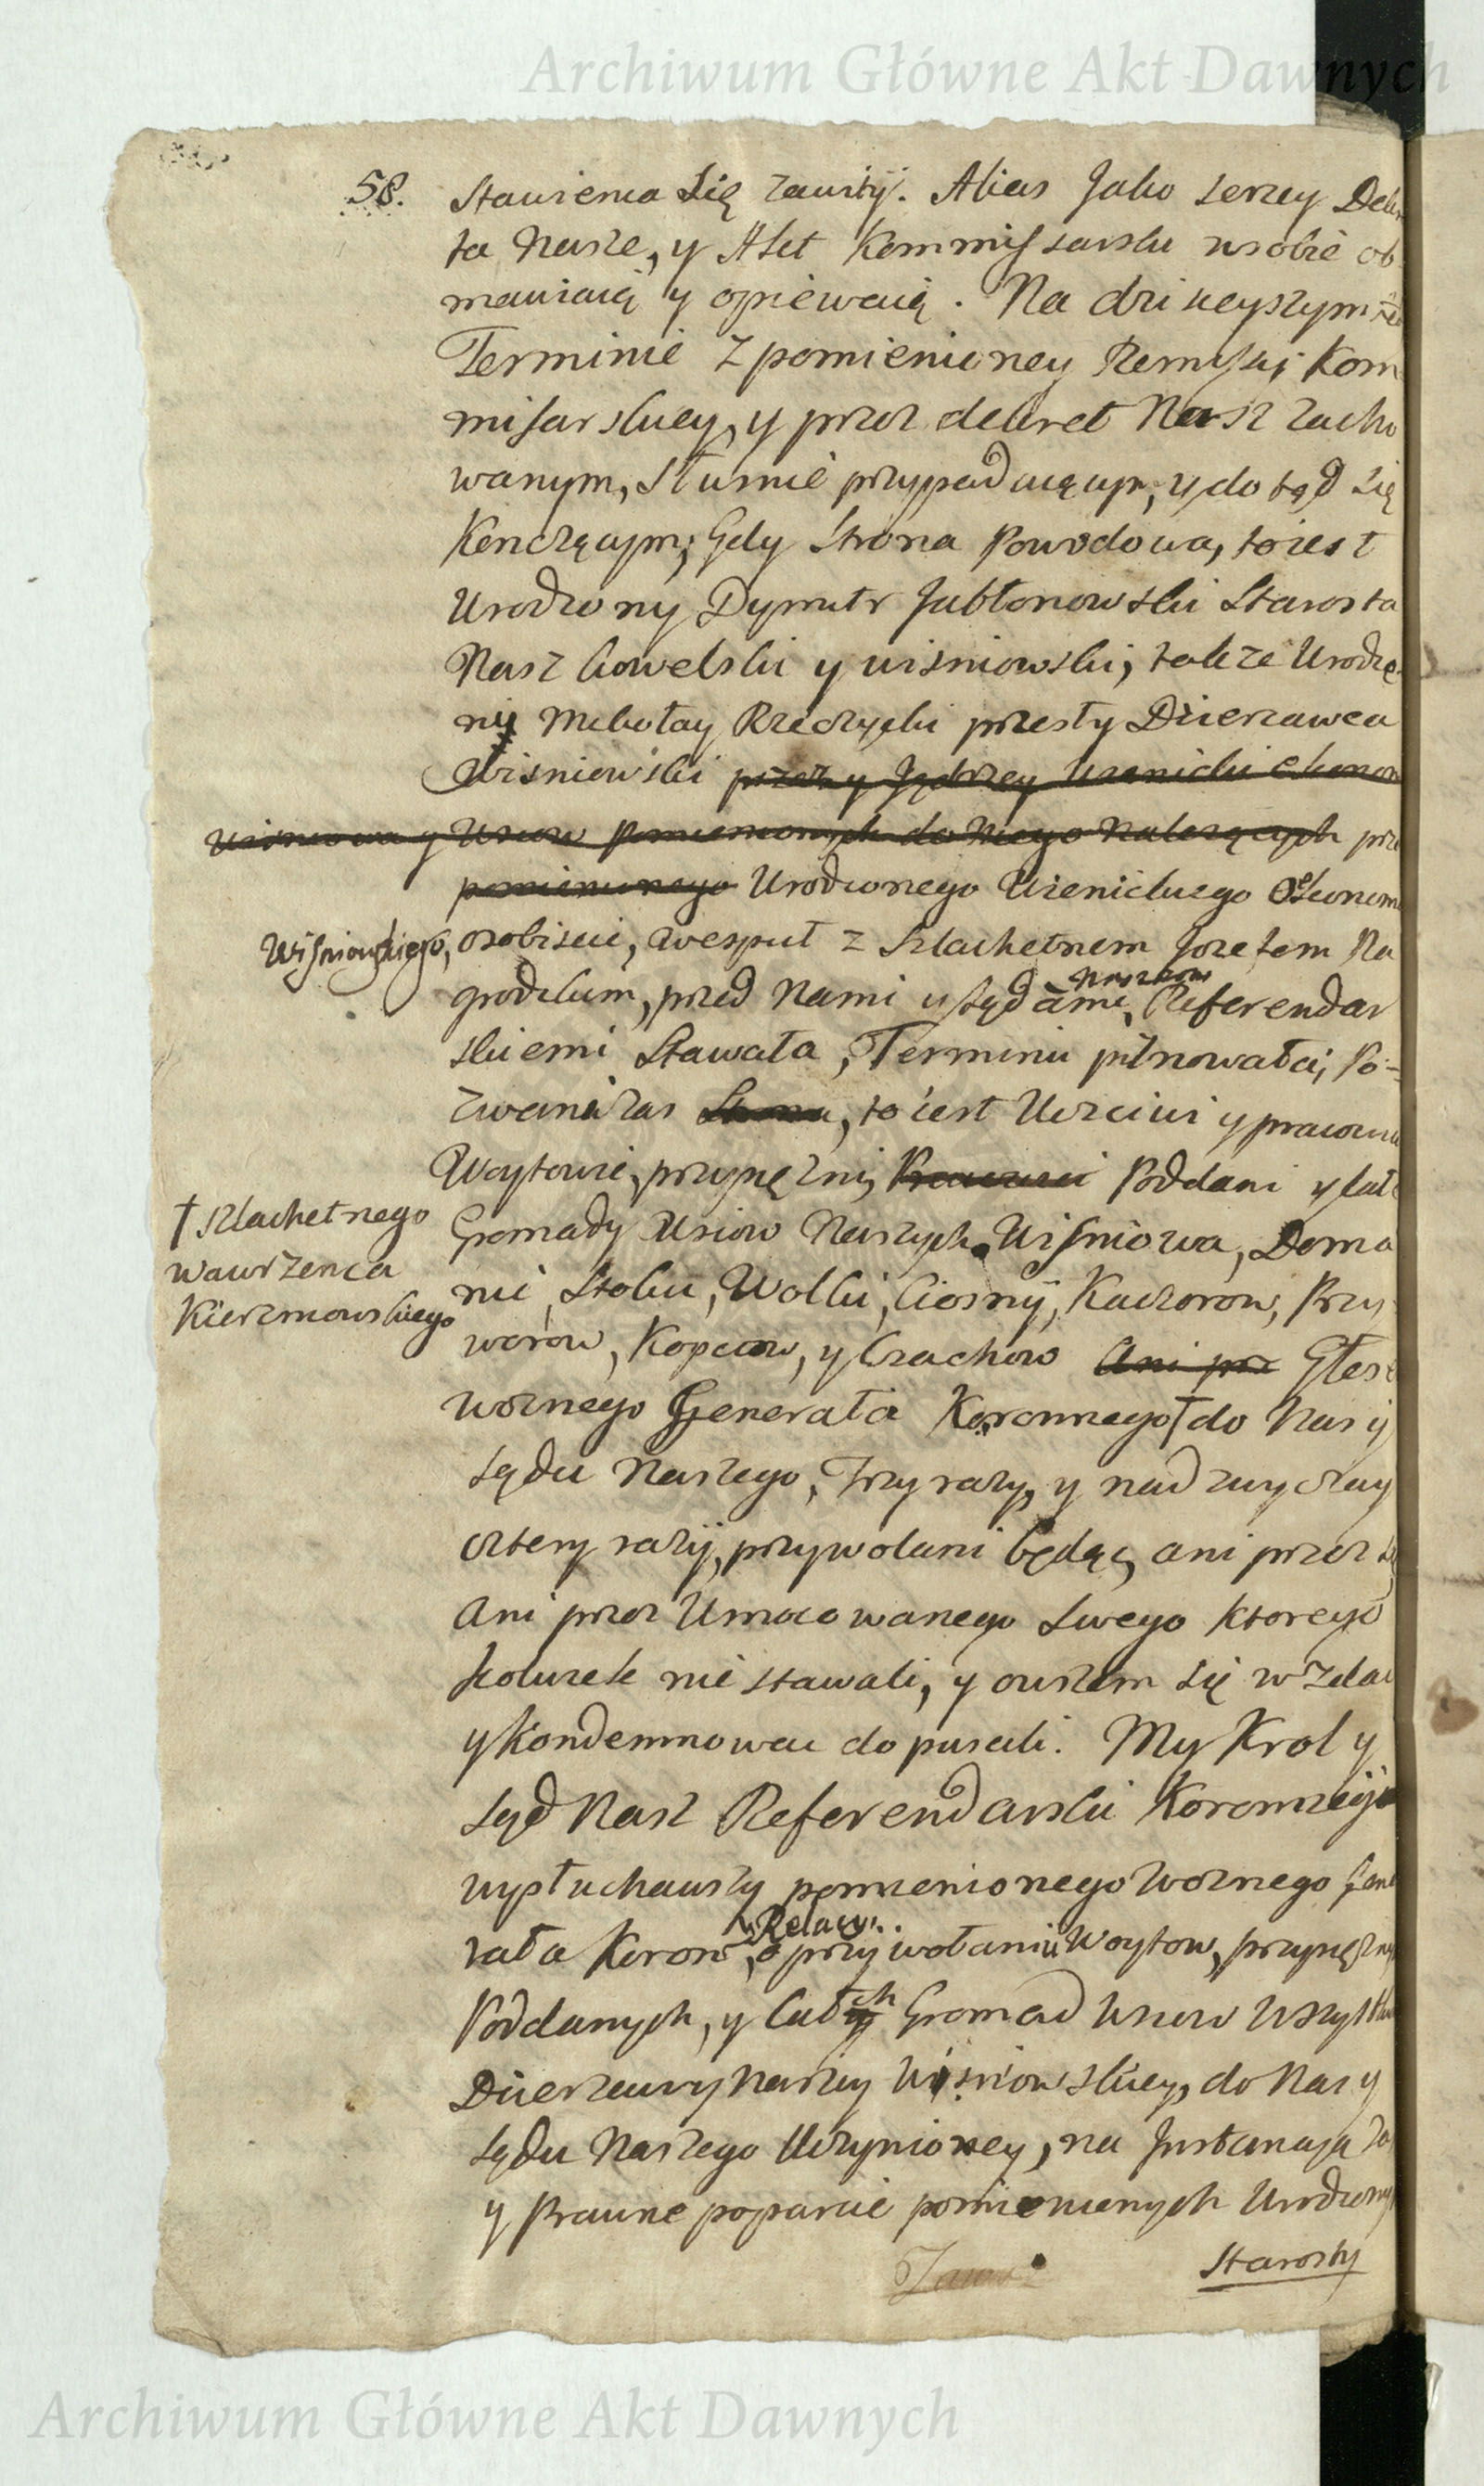 Archiwum Główne Akt Dawnych
58. Stawienia Się zawity. Alias Jako szerzey Dekre
ta Nasze, y Akt Kommissarski w sobie ob
mawiaią y opiewaią. Na dzisieyszym
Terminie z pomienioney Remissy Kom
misarskiey, y przez dekret Nasz zacho
wanym, słusznie przypadaiącym, y do tąd Się
Kończącym; Gdy Strona Powodowa, to iest
Urodzony Dymitr Jabłonowski Starosta
Nasz Kowelski y wiśniowski, także Urodzo
ny Mikołay Rzeczycki przeszły Dzierzawca
Wiśniowski przez y Jędrzey Uzenicki Ekonom
Wisniowa y Wsiow Pomienionych do Niego Należących prze
pomienionego Urodzonego Uzienickiego Ekonoma
Wiśniowskiego, osobiscie, wespuł z Szlachetnem Jozefem Na
grodzkim, przed Nami y sądami Naszemi Referendar
skiemi Stawała, Terminu pilnowała; Po-
zwani zas Strona, to iest Uczciwi y pracowici
Woytowie, przysężni, Pracowici Poddani y całe
† Szlachetnego
Wawrzenca
Kierznowskiego
Gromady Wsiow Naszych Wiśniowa, Doma
nie, Stoku, Wolki, Ciosny, Kaczorow, Przy
worow, Kopcow, y Czachow Ani prz Głosem
woznego Generała Koronnego† do Nas y
Sądu Naszego, Trzy razy, y nad zwyczay
cztery razy, przywołani będąc, ani przez się
Ani przez Umocowanego Swego ktorego
kolwiek nie stawali, y owszem się w zdac
y Kondemnowac dopuscili. My Krol y
Sąd Nasz Referendarski Koronny
wysłuchawszy pomienionego Woznego Gene
rała Koron, Relacyi o przywołaniu Woytow, przysężnych
Poddanych, y całych Gromad Wsiow Wszystkich
Dzierzawy Naszey Wiśniowskiey, do Nas y
Sądu Naszego Uczynioney, na Instancyą za
y Prawne poparcie pomienionych Urodzonych
Starosty
Archiwum Główne Akt Dawnych